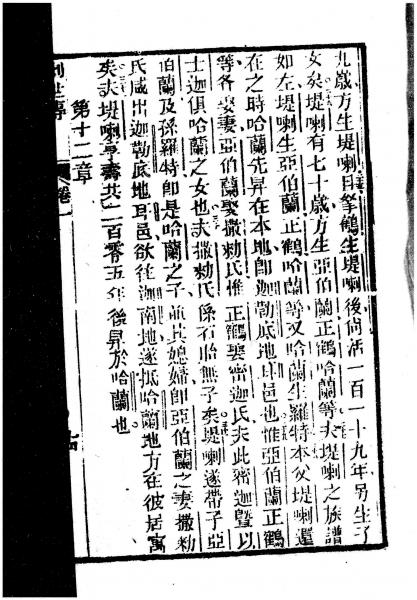 九歲方生堤喇且拏鶴生堤喇後尙活一百一十九年另生子
女矣堤喇有七十歲方生亞伯蘭正鶴哈蘭等夫堤喇之族譜
如左堤喇生亞伯蘭正鶴哈蘭等又哈蘭生羅特本父堤喇還
在之時哈蘭先昇在本地卽迦勒底地耳邑也惟亞伯蘭正鶴
等各娶妻亞伯蘭娶撒勑氏惟正鶴娶密迦氏夫此密迦曁以
士迦俱哈蘭之女也夫撒勑氏係石胎無子矣堤喇遂帶子亞
伯蘭及孫羅特卽是哈蘭之子並其媳婦卽亞伯蘭之妻撒勑
氏咸出迦勒底地耳邑欲往迦南地遂抵哈蘭地方在彼居寓
矣夫堤喇享壽共二百零五年後昇於哈蘭也
第十二章
創世傳 卷一